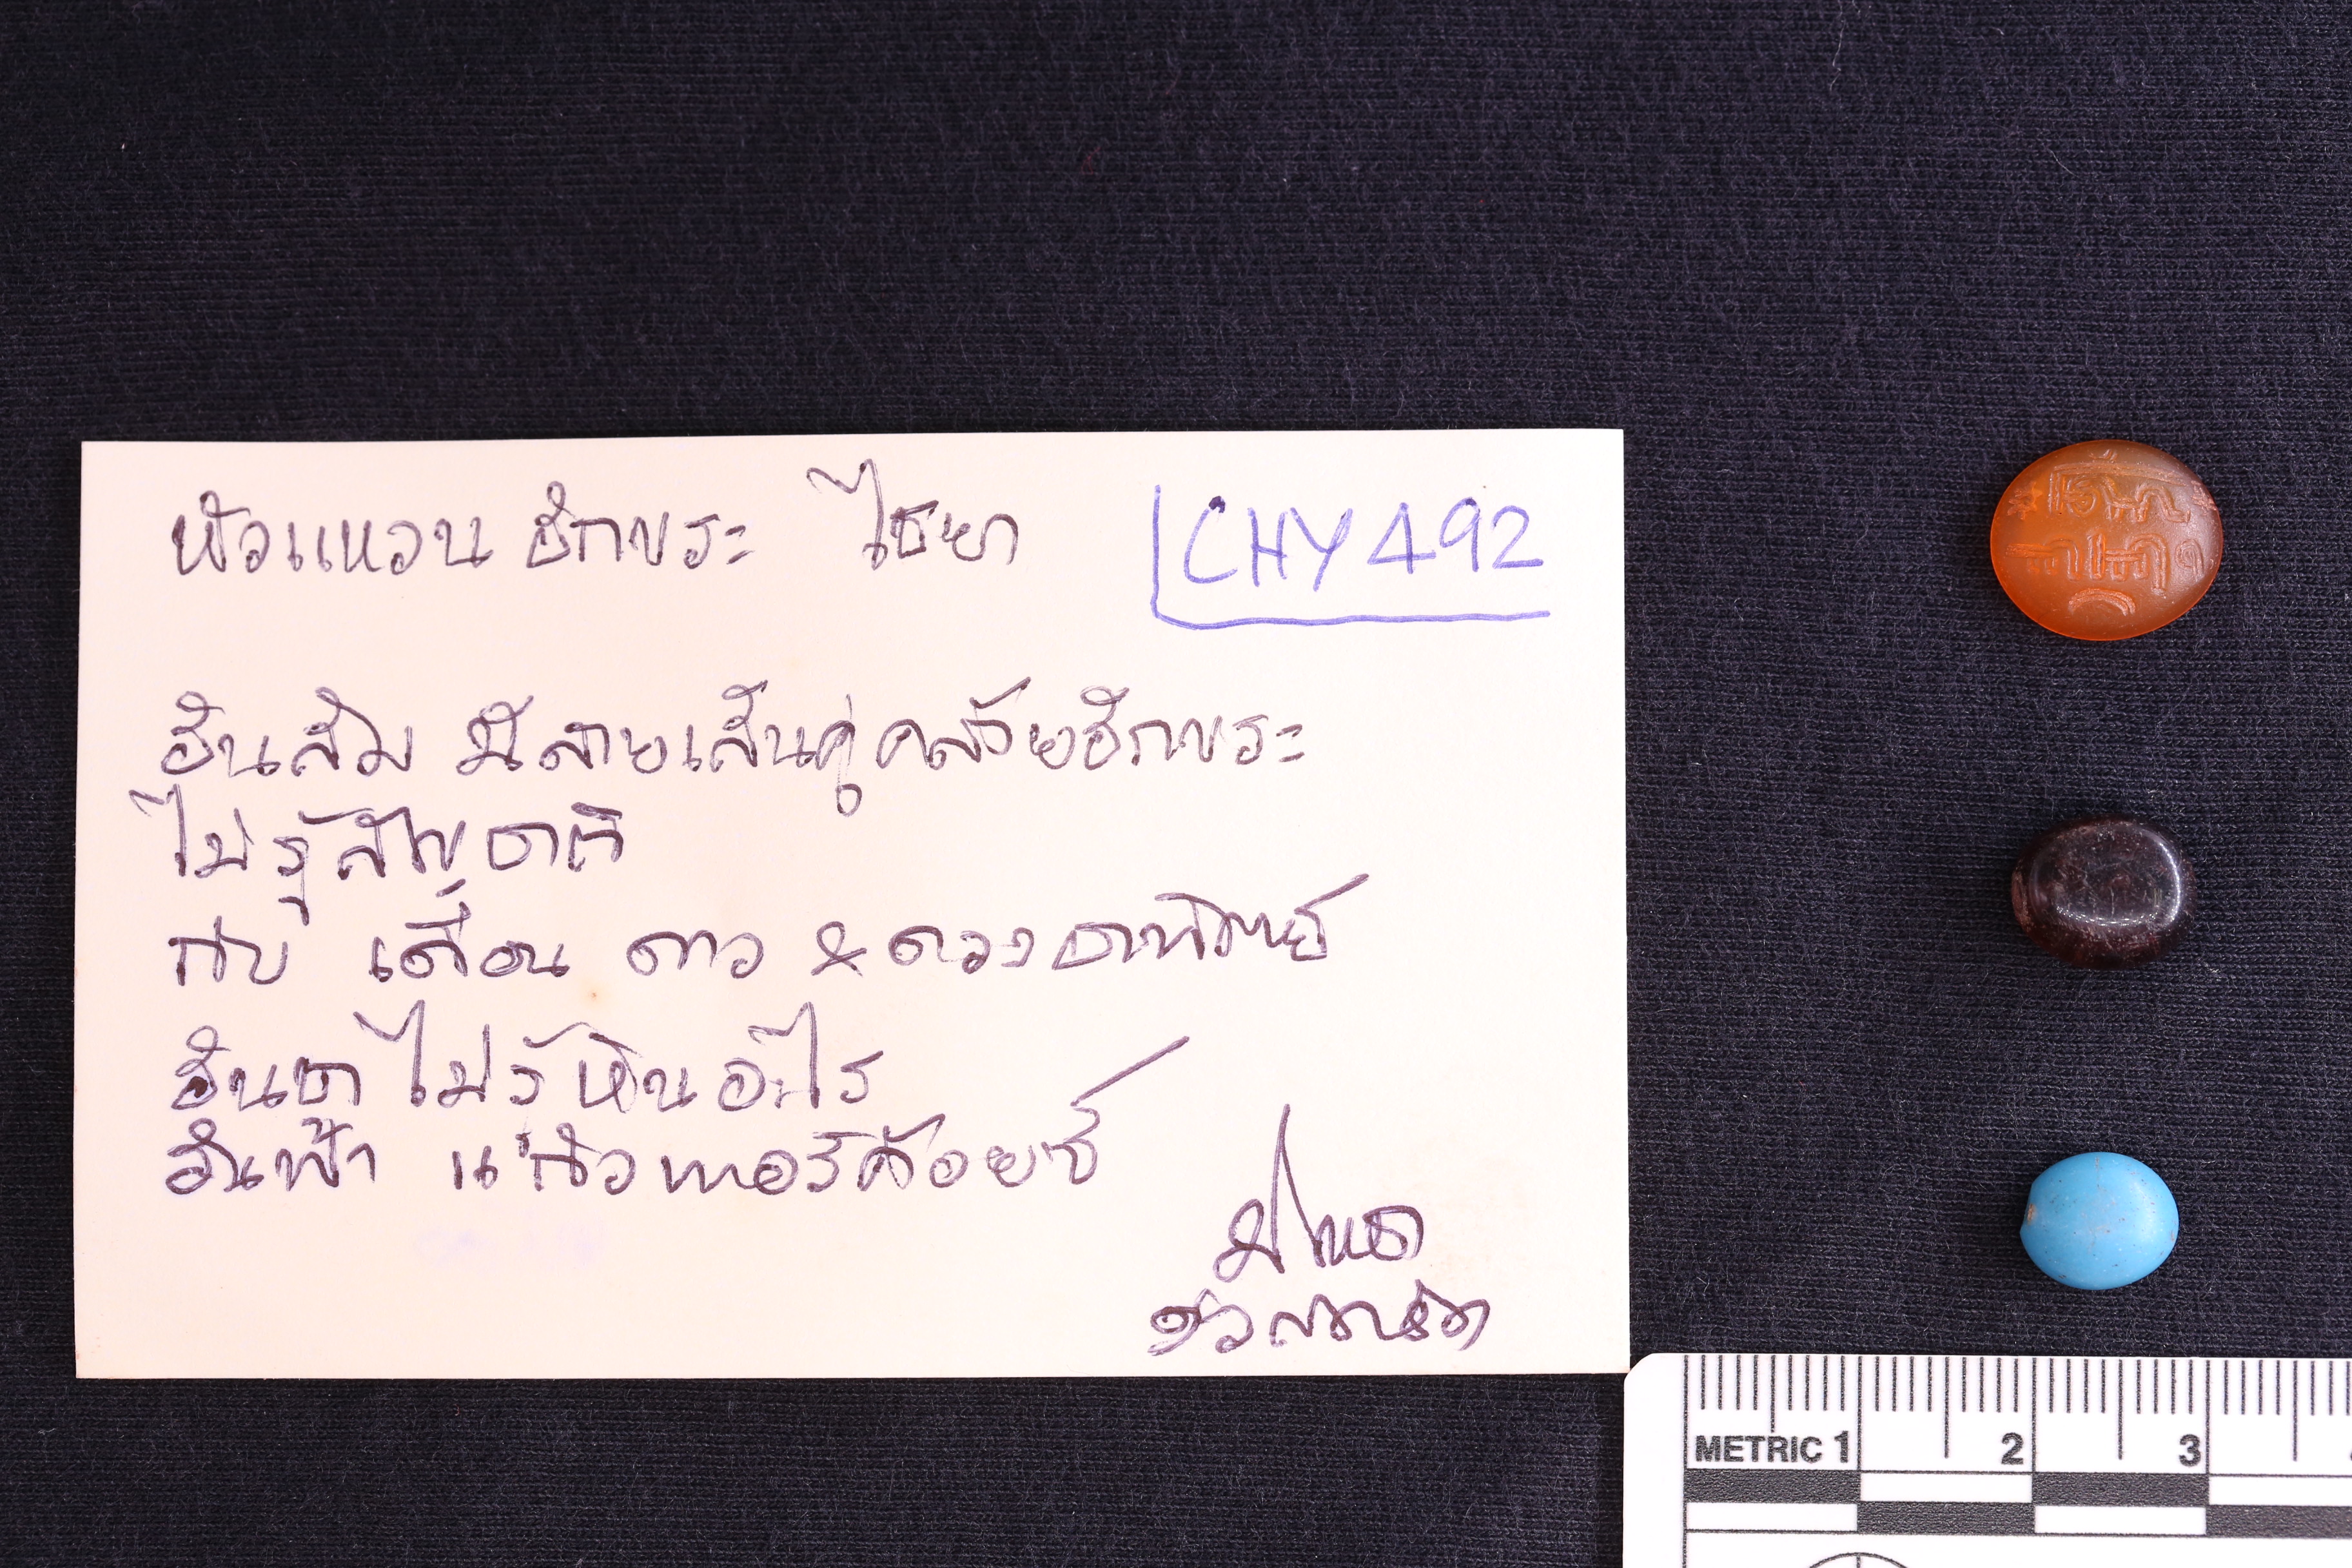 หัวแหวน อักขระ ไชยา
CHY 492
อันส้ม มีลายเส้นคู่ คล้ายอักขระ
ไม่รู้สัญชาติ
กับ เดือน ดาว & ดวงอาทิตย์
อันดำ ไม่รู้หินอะไร
อันฟ้า แก้วเทอร์ค้อยซ์
METRIC 1 2 3